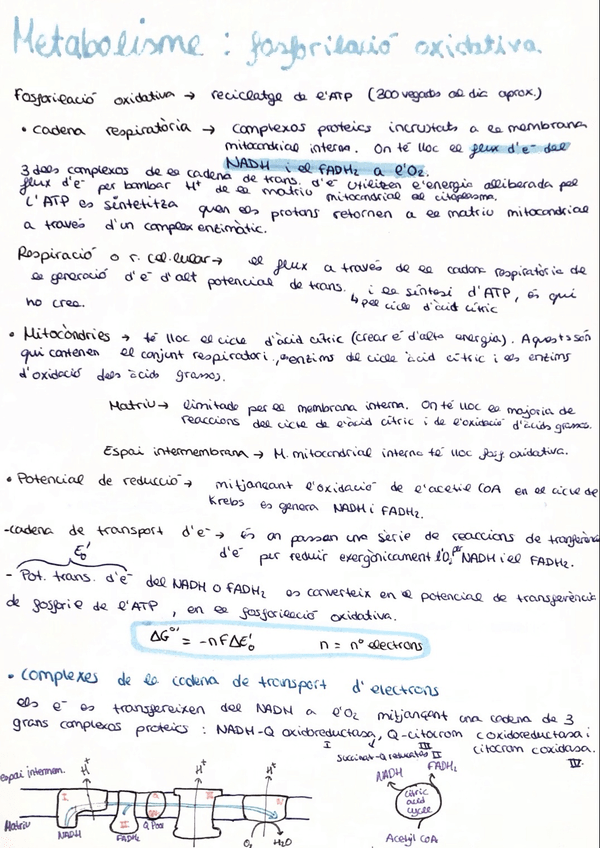 Metabolisme : fosforilació oxidativa.
Fosforilació oxidativa → reciclatge de l'ATP (300 vegades al dia aprox.)
• cadena respiratòria → complexos proteics incrustats a la membrana
mitocondrial interna. On té lloc el flux d'e- del
NADH i el FADH2 a l'O2.
3 dels complexos de la cadena de trans. d'e- utilitzen l'energia alliberada pel
flux d'e- per bombar H+ de la matriu mitocondrial al citoplasma.
L'ATP es sintetitza quan els protons retornen a la matriu mitocondrial
a través d'un complex enzimàtic.
Respiració o r. cel·lular → el flux a través de la cadena respiratòria de
la generació d'e- d'alt potencial de trans. i la síntesi d'ATP, és qui
no crea. ↳ pel cicle d'àcid cítric
• Mitocòndries → té lloc el cicle d'àcid cítric (crear e- d'alta energia). Aquests són
qui contenen el conjunt respiratori, enzims del cicle àcid cítric i els enzims
d'oxidació dels àcids grassos.
Matriu → limitada per la membrana interna. On té lloc la majoria de
reaccions del cicle de l'àcid cítric i de l'oxidació d'àcids grassos.
Espai intermembrana → M. mitocondrial interna té lloc fosf oxidativa.
• Potencial de reducció → mitjançant l'oxidació de l'acetil CoA en el cicle de
Krebs es genera NADH i FADH2.
-cadena de transport d'e- → és on passen una sèrie de reaccions de transferència
d'e- per reduir exergònicament l'O2 per NADH i el FADH2.
E0'
- Pot. trans. d'e- del NADH o FADH2 es converteix en el potencial de transferència
de fosforil de l'ATP, en la fosforilació oxidativa.
ΔG°' = -nFΔE0' n = nº electrons
• Complexes de la cadena de transport d'electrons
els e- es transfereixen del NADH a l'O2 mitjançant una cadena de 3
grans complexos proteics : NADH-Q oxidoreductasa, Q-citocrom c oxidoreductasa i
I III citocrom c oxidasa.
Succinat-Q reductasa II IV.
Espai intermem. H+ H+ H+ NADH FADH2
I Q III IV citric acid cycle
Matriu NADH II FADH2 Q Pool O2 H2O Acetyl CoA